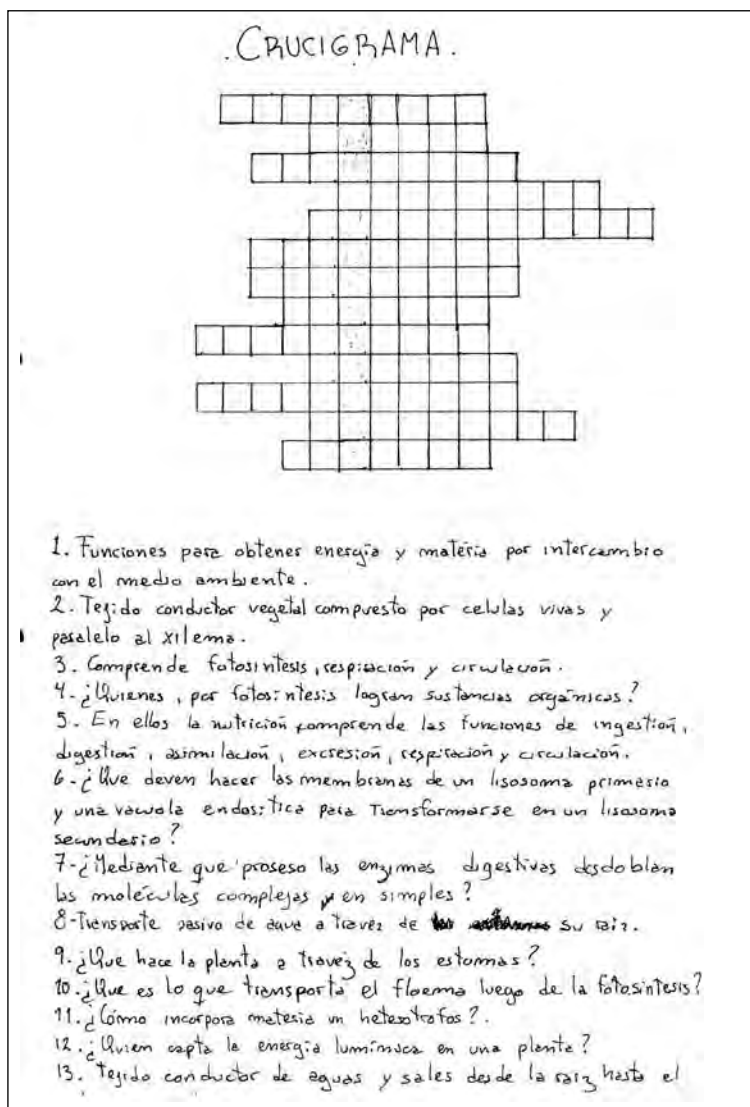 CRUCIGRAMA.
1. Funciones para obtener energía y materia por intercambio
con el medio ambiente.
2. Tejido conductor vegetal compuesto por celulas vivas y
paralelo al xilema.
3. Comprende fotosintesis, respiración y circulación.
4-¿Quienes, por fotosintesis logran sustancias orgánicas?
5. En ellos la nutrición comprende las funciones de ingestión,
digestión, asimilación, excresión, respiración y circulación.
6-¿Que deven hacer las membranas de un lisosoma primario
y una vacuola endositica para transformarse en un lisosoma
secundario?
7-¿Mediante que proseso las enzimas digestivas desdoblan
las moléculas complejas en simples?
8-Transporte pasivo de agua a travez de su raiz.
9.¿Que hace la planta a travez de los estomas?
10.¿Que es lo que transporta el floema luego de la fotosintesis?
11.¿Cómo incorpora materia un heterotrofos?.
12.¿Quien capta la energia luminica en una planta?
13. Tejido conductor de aguas y sales desde la raiz hasta el